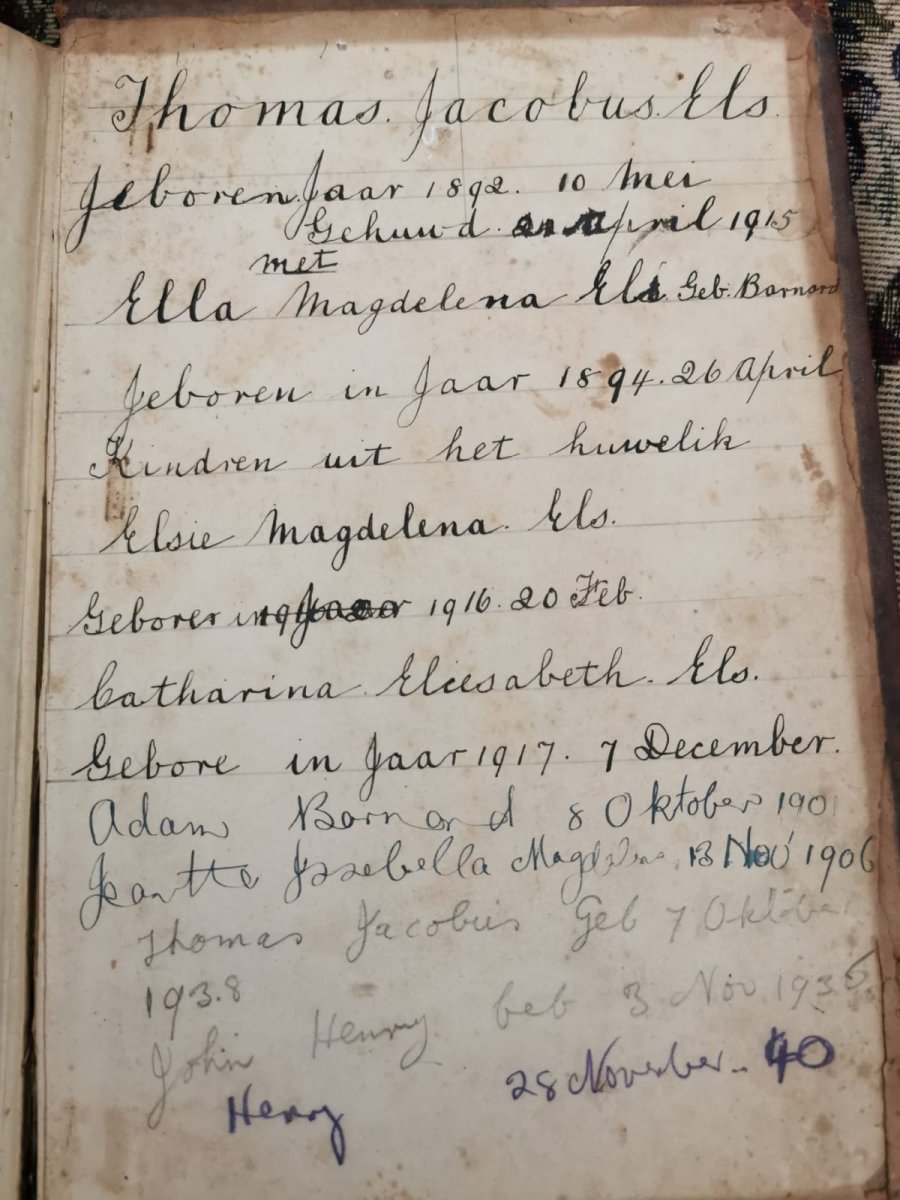 Thomas. Jacobus. Els.
Jeboren. Jaar 1892. 10 Mei
Gehuwd. April 1915
met
Ella Magdelena Els. Geb. Barnard
Jeboren in Jaar 1894. 26 April
Kindren uit het huwelik
Elsie Magdelena. Els.
Geboren in 1916. 20 Feb.
Catharina Eliesabeth. Els.
Gebore in Jaar 1917. 7 December.
Adam Barnard 8 Oktober 1901
Magdelena 13 Nov 1906
Thomas Jacobus Geb 7 Oktober
1938
John Henry 3 Nov 1936
Henry 28 November. 40